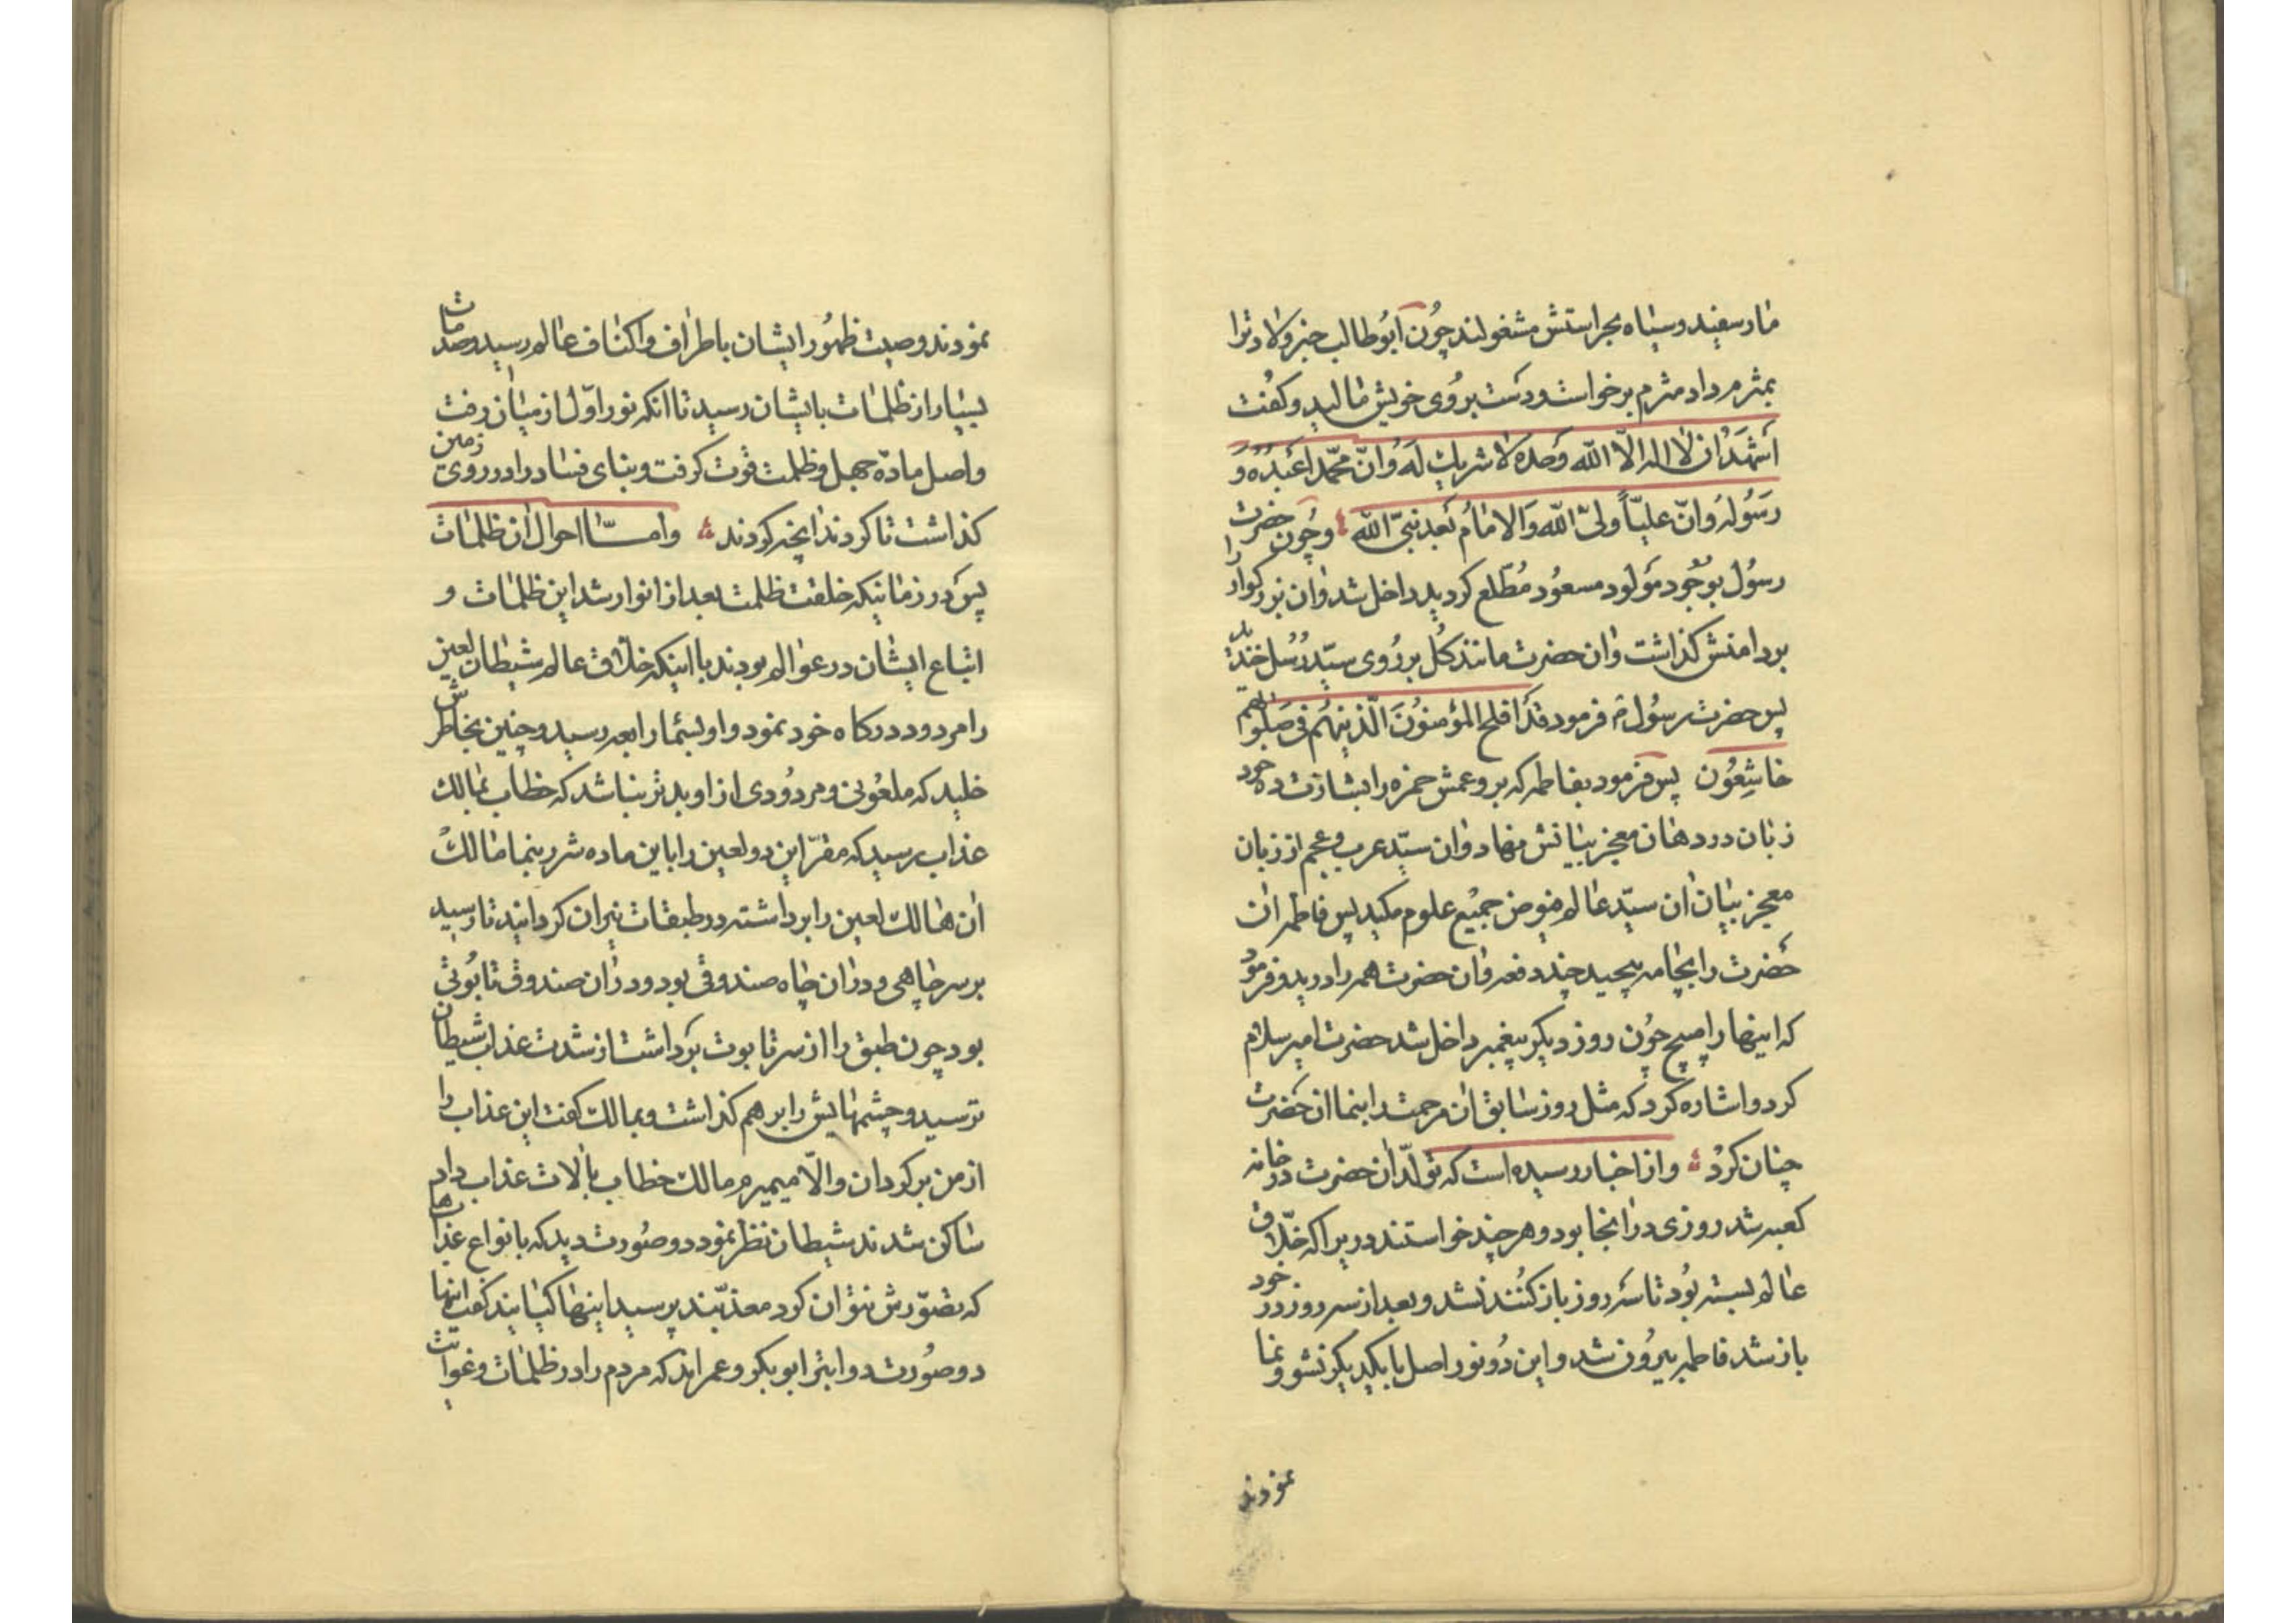 مار سفید و سیاه بحراستش مشغولند چون ابوطالب خبر ولادت را
بمثرم داد مثرم برخواست و دست بر روی خویش مالید و کفت
اَشهَدُ ان لا اله الّا الله وَحده لا شریک لَه وَانّ محمّداً عَبدُهُ وَ
رَسُولهُ وَانّ علیّاً ولیّ الله وَالامامُ بَعد نبیّ الله وچُون حضرت
رسُول بوُجود مَولود مسعُود مُطّلع کردید داخل شد وان بزرکوار را
بردامنش کذاشت وان حضرت مانند کُل بر رُوی سیّد رُسُل خندید
پس حضرت رسُول م فرمود قَد افلح المؤمنُونَ الّذینهُم فی صَلٰوتهم
خاشِعُون پس فرمود بفاطمه که برو عمش حمزه را بشارت ده خود
زبان در دهان معجز بیانش نهاد وان سیّد عرب و عجم از زبان
معجز بیان ان سیّد عالم فیوض جمیع علوم مکید پس فاطمه ان
حَضرت را بجامه پیچید چند دفعه وان حضرت همه را درید و فرمود
که اینها را مپیچ چُون روز دیکر پیغمبر داخل شد حضرت امیر سلام
کرد و اشاره کرد که مثل روز سابق ان مرحمت را بنما ان حَضرت
چنان کردْ و از اخبار رسیده است که تولّد ان حضرت در خانه
کعبه شد روزی در انجا بود و هرچند خواستند در یرا که خلّاق
عالم بسته بُود تا سَه روز باز کُنند نشد و بعد از سه روز در خود
باز شد فاطمه بیرُون شد و این دُو نور اصل با یکدیکر نشو و نما
نمودند
نمودند وصیت ظهُور ایشان باطراف و اکناف عالم رسید و صدمات
بسیار از ظلمات بایشان رسید تا انکه نور اوّل از میان رفت
و اصل مادّه جهل و ظلمت قوت کرفت و بنای فساد را در روی زمین
کذاشت تا کردند انچه کردند وامّا احوال ان ظلمات
پس در زمانیکه خلقت ظلمت بعد از انوار شد این ظلمات و
اتباع ایشان در عوالم بودند با اینکه خلّاق عالم شیطان لعین
را مردود درکاه خود نمود و اوبسٔما رابعه رسید و چنین بخاطرش
خلید که ملعُونی و مردُودی از او بدتر نباشد که خطاب بمالک
عذاب رسید که مقرّ این دو لعین را باین ماده شر بنما مالکْ
ان هالک لعین را برداشته در طبقات نیران کردانید تا رسید
بر سر چاهی و در ان چاه صندوقی بود و در ان صندوق تابُوتی
بود چون طبق را از سر تابوت بَرداشت از شدت عذاب شیطان
ترسید و چشمهایش را بر هم کذاشت و بمالک کفت این عذاب را
از من برکردان والّا میمیرم مالک خطاب بالات عذاب داد
ساکن شدند شیطان نظر نمود دو صُورت دید که بانواع عذابها
که تصوّرش نتوان کرد معذبّند پرسید اینها کیانند کفت اینها
دو صُورت دو ابتر ابوبکر و عمراند که مردم را در ظلمات و غوایت